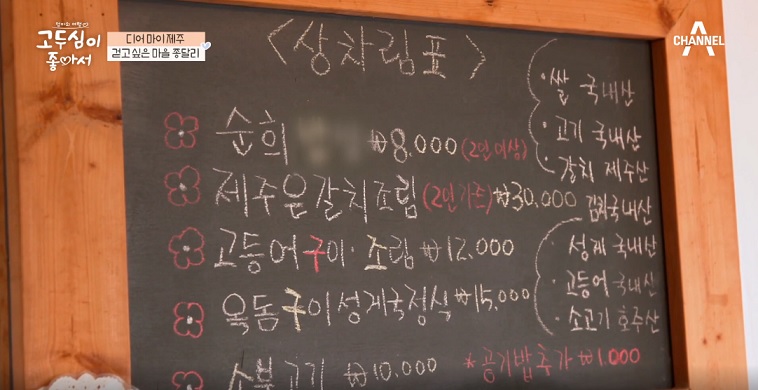 고두심이
좋아서
디어 마이 제주
걷고 싶은 마을 종달리
CHANNEL A
<상차림표>
순희 ₩8,000 (2인 이상)
제주은갈치조림 (2인 기준) ₩30,000
고등어구이·조림 ₩12,000
옥돔구이성게국정식 ₩15,000
소불고기 ₩10,000
*공기밥추가 ₩1,000
·쌀 국내산
·고기 국내산
·갈치 제주산
김치국내산
·성게 국내산
·고등어 국내산
·소고기 호주산